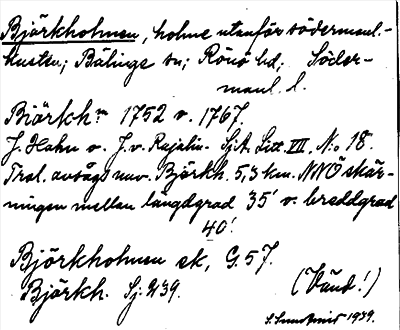 Björkholmen, holme utanför södermanl.-
kusten; Bälinge sn; Rönö hd, Söder-
manl. l.
Biörkh:n 1752 o. 1767.
J. Hahn o. J. v. Rajalin. SjA. Litt VII. No 18.
Trol. avsågs nuv. Björkh. 5,3 km. NNÖ skär-
ningen mellan längdgrad 35' o. breddgrad
40'.
Björkholmen ek, G. 57.
Björkh. Sj: 239.
(Vänd!)
S. Sundqvist 1939.